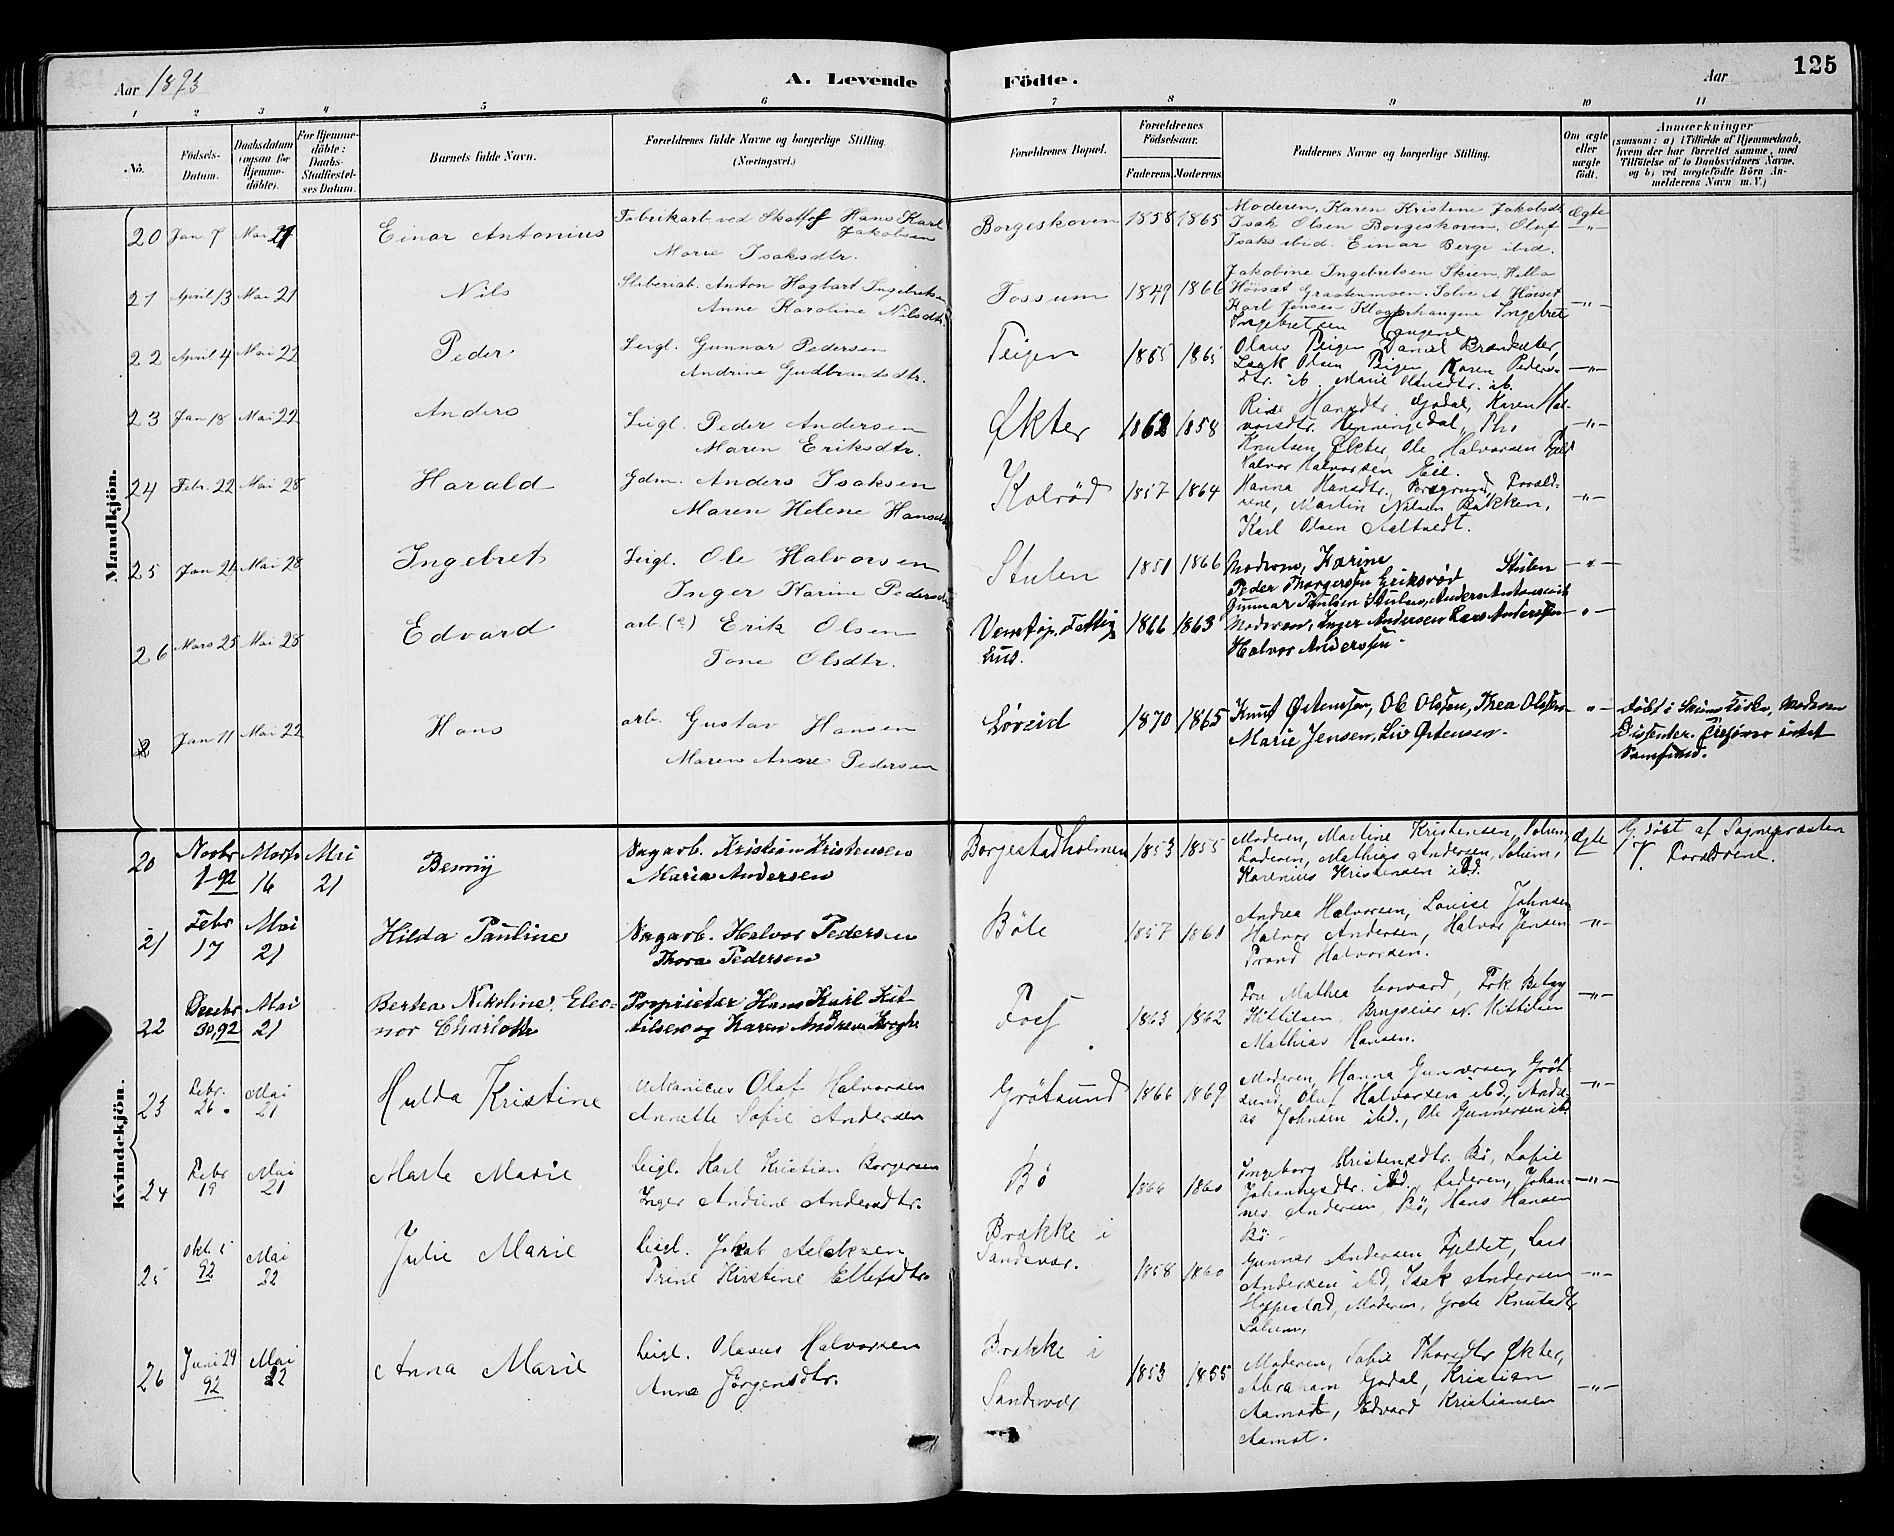 Aar 1893
A. Levende
Födte.
Aar
125
1 2 3 4 5 6 7 8 9 10 11
No.
Födsels-Datum.
Daabsdatum (ogsaa for Hjemme-döbte).
For Hjemme-döbte: Daabs-Stadfæstel-ses Datum.
Barnets fulde Navn.
Forældrenes fulde Navne og borgerlige Stilling. (Næringsvei.)
Forældrenes Bopæl.
Forældrenes Födselsaar.
Faderens. Moderens.
Faddernes Navne og borgerlige Stilling.
Om ægte eller uægte født.
Anmærkninger
(saasom: a) i Tilfælde af Hjemmedaab, hvem der har forrettet samme, med Tilföielse af to Daabsvidners Navne, og b) ved uægtefödte Börn An-melderens Navn m. V.)
Mandkjön.
20 Jan 7 Mai 21 Einar Antonius Fabrikarb. ved Hans Karl
Jakobsen
Marie Isaksdtr.
Borgeskoven 1858 1865 Moderen, Karen Kristine Jakobsdtr
Isak Olsen Borgeskoven, Oluf
Isaks ibid. Einar Berge ibid.
Ægte
21 April 13 Mai 21 Nils Anton Hagbart Ingebretsen
Anne Karoline Nilsdtr.
Fossum 1849 1866 Jakobine Ingebretsen Skien, Hella
Höisæt Graatenmoen. Solve A Höiset
Karl Jensen Ingebret
Ingebretsen Haugene
-"-
22 April 4 Mai 22 Peder Leigl. Gunnar Pedersen
Andrine Gudbrandsdtr.
Teigen 1865 1865 Olaus Teigen Daniel Brændsæter,
Isak Olsen Teigen, Karen Peders-
dtr. ib. Marie Olausdtr. ib.
-"-
23 Jan 18 Mai 22 Anders Leigl. Peder Andersen
Maren Eriksdtr.
Økter 1862 1858 Hansdtr. Godal, Karen Hal-
vorsdtr. Henningsdal,
Knutsen Økter, Ole Halvorsen
Halvor Halvorsen Eie.
-"-
24 Febr. 22 Mai 28 Harald Gdm. Anders Isaksen
Maren Helene Hansdtr
Kolrød 1857 1864 Hanna Hansdtr. Porsgrund, Foræld-
rene, Martin Nilsen Bakken,
Karl Olsen Aaltvedt.
-"-
25 Jan 21 Mai 28 Ingebret Leigl. Ole Halvorsen
Inger Karine Pedersdtr
Stulen 1851 1866 Moderen, Karine Stulen
Peder Thorgersen Eriksrød
Gunnar Paulsen Stulen, Anders Antonsen ib
-"-
26 Mars 25 Mai 28 Edvard arb. (?) Erik Olsen
Tone Olsdtr.
Venstøp, Fattig
hus.
1866 1863 Moderen, Inger Andersen Lars Andersen
Halvor Andersen
-"-
Jan 11 Mai 22 Hans arb. Gustav Hansen
Maren Anne Pedersen
Løveid 1870 1865 Knut Østensen, Ole Olsen, Thea Olsen
Marie Jensen, Liv Østensen.
-"-
Døbt i Skiens Kirke, Moderen
Dissenter. Tilhører intet
Samfund.
Kvindekjön.
20 Novbr 1-92 Marts 16 Mai 21 Benny Sagarb. Kristian Kristensen
Maria Andersen
Borgestadholmen 1853 1855 Moderen, Martine Kristensen, Solum,
Faderen, Mathias Andersen, Solum,
Karenius Kristensen ibd.
Ægte
Hj. døbt af Sognepræsten
T. Forældrene.
21 Febr 17 Mai 21 Hilda Pauline Sagarb. Halvor Pedersen
Thora Pedersen
Böle 1857 1861 Andrea Halvorsen, Louise Johnsen
Halvor Andersen, Halvor Jensen
Trond Halvorsen.
-"-
22 Decbr 30,92 Mai 21 Bertea Nikoline, Eleo-
nor Charlotte
Proprietær Hans Karl Kit-
tilsen og Karen Andrea
Foss 1863 1862 Fru Mathea Frk Betsy
Kittilsen, Brugseier N. Kittilsen
Mathias Hansen.
-"-
23 Febr. 26. Mai 21 Hulda Kristine Mekanicus Olaf Halvorsen
Annette Sofie Andersen
Grötsund 1866 1869 Moderen, Hanna Gunnersen, Gröt
sund, Oluf Halvorsen ibd, Andre-
as Johnsen ibd., Ole Gunnersen ibd
-"-
24 Febr 19 Mai 21 Marte Marie Leigl. Karl Kristian Borgersen
Inger Andrine Andersdtr.
Bö 1866 1860 Ingeborg Kristensdtr. Bö, Sofie
Johannesdtr. ibd. Faderen, Johan-
nes Andersen, Bö, Hans Hansen
Bö.
-"-
25 Okt. 5 92 Mai 22 Julie Marie Leigl. Jakob
Trine Kirstine Ellefsdtr.
Brække i
Sandsvær.
1858 1860 Gunnar Andersen Fjeldet, Lars
Andersen ibd, Isak Andersen
Hoppestad, Moderen, Grete Knutsdtr
Solum.
-"-
26 Juni 29 92 Mai 22 Anna Marie Leigl. Olaves Halvorsen
Anne Jørgensdtr.
Brække i
Sandsvær
1853 1855 Moderen, Sofie Thorsdtr Økter,
Abraham Godal, Kristian
Aamot, Edvard Kristiansen
Aamot.
-"-